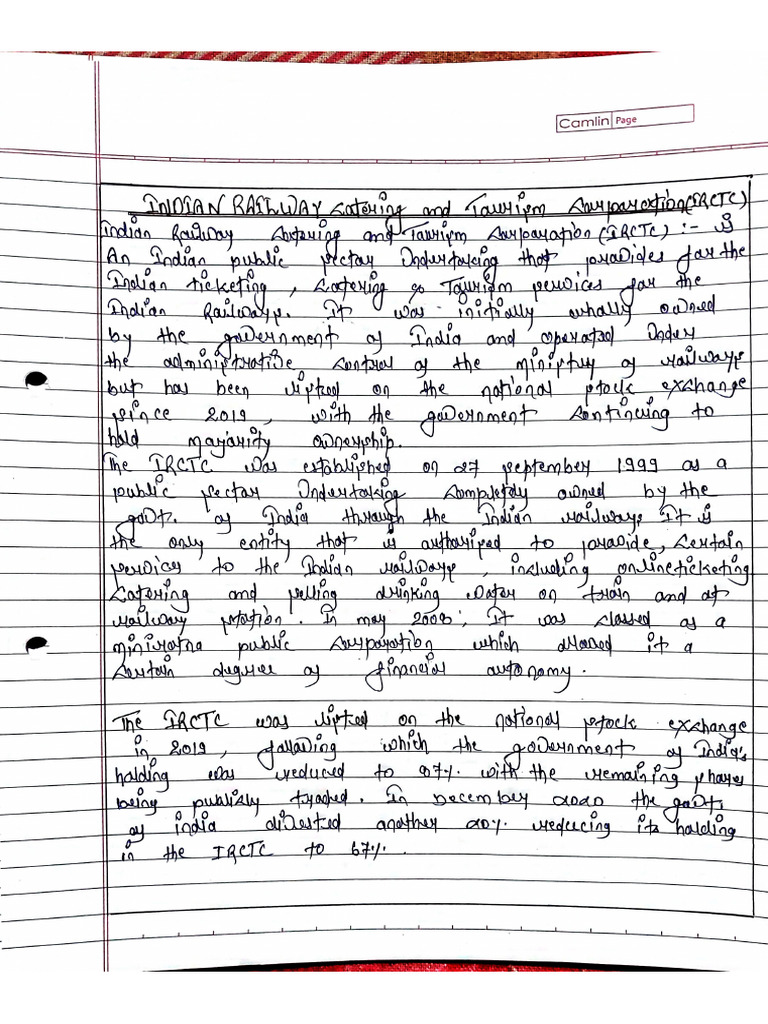 Camlin Page
INDIAN RAILWAY Catering and Tourism Corporation (IRCTC)
Indian Railway Catering and Tourism Corporation (IRCTC) :- is
An Indian public sector Undertaking that provides for the
Indian ticketing, Catering & Tourism services for the
Indian Railways. It was initially wholly owned
by the government of India and operated Under
the administrative control of the ministry of railways
but has been listed on the national stock exchange
since 2019, with the government continuing to
hold majority ownership.
The IRCTC was established on 27 september 1999 as a
public sector Undertaking completely owned by the
govt. of India through the Indian railways It is
the only entity that is authorised to provide, certain
services to the Indian railways, including onlineticketing
Catering and selling drinking water on train and at
railway station. In may 2008, It was classed as a
miniratna public corporation which allowed it a
certain degree of financial autonomy.
The IRCTC was listed on the national stock exchange
in 2019, following which the government of India's
holding was reduced to 87% with the remaining shares
being publicly traded. In December 2020 the govt.
of india divested another 20% reducing its holding
in the IRCTC to 67%.